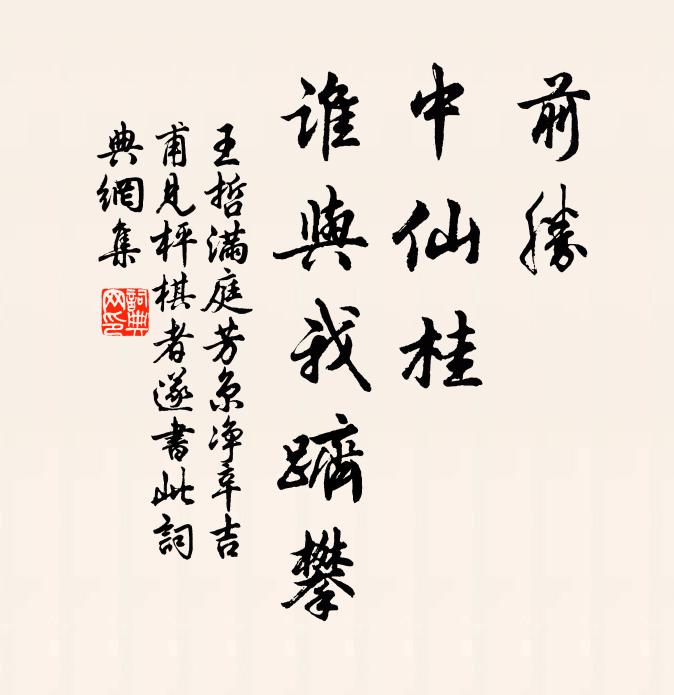 前勝
中仙桂
誰與我躋攀
王哲滿庭芳京净章吉
甫見枰棋者遂書此詞
典網集
詞典網印